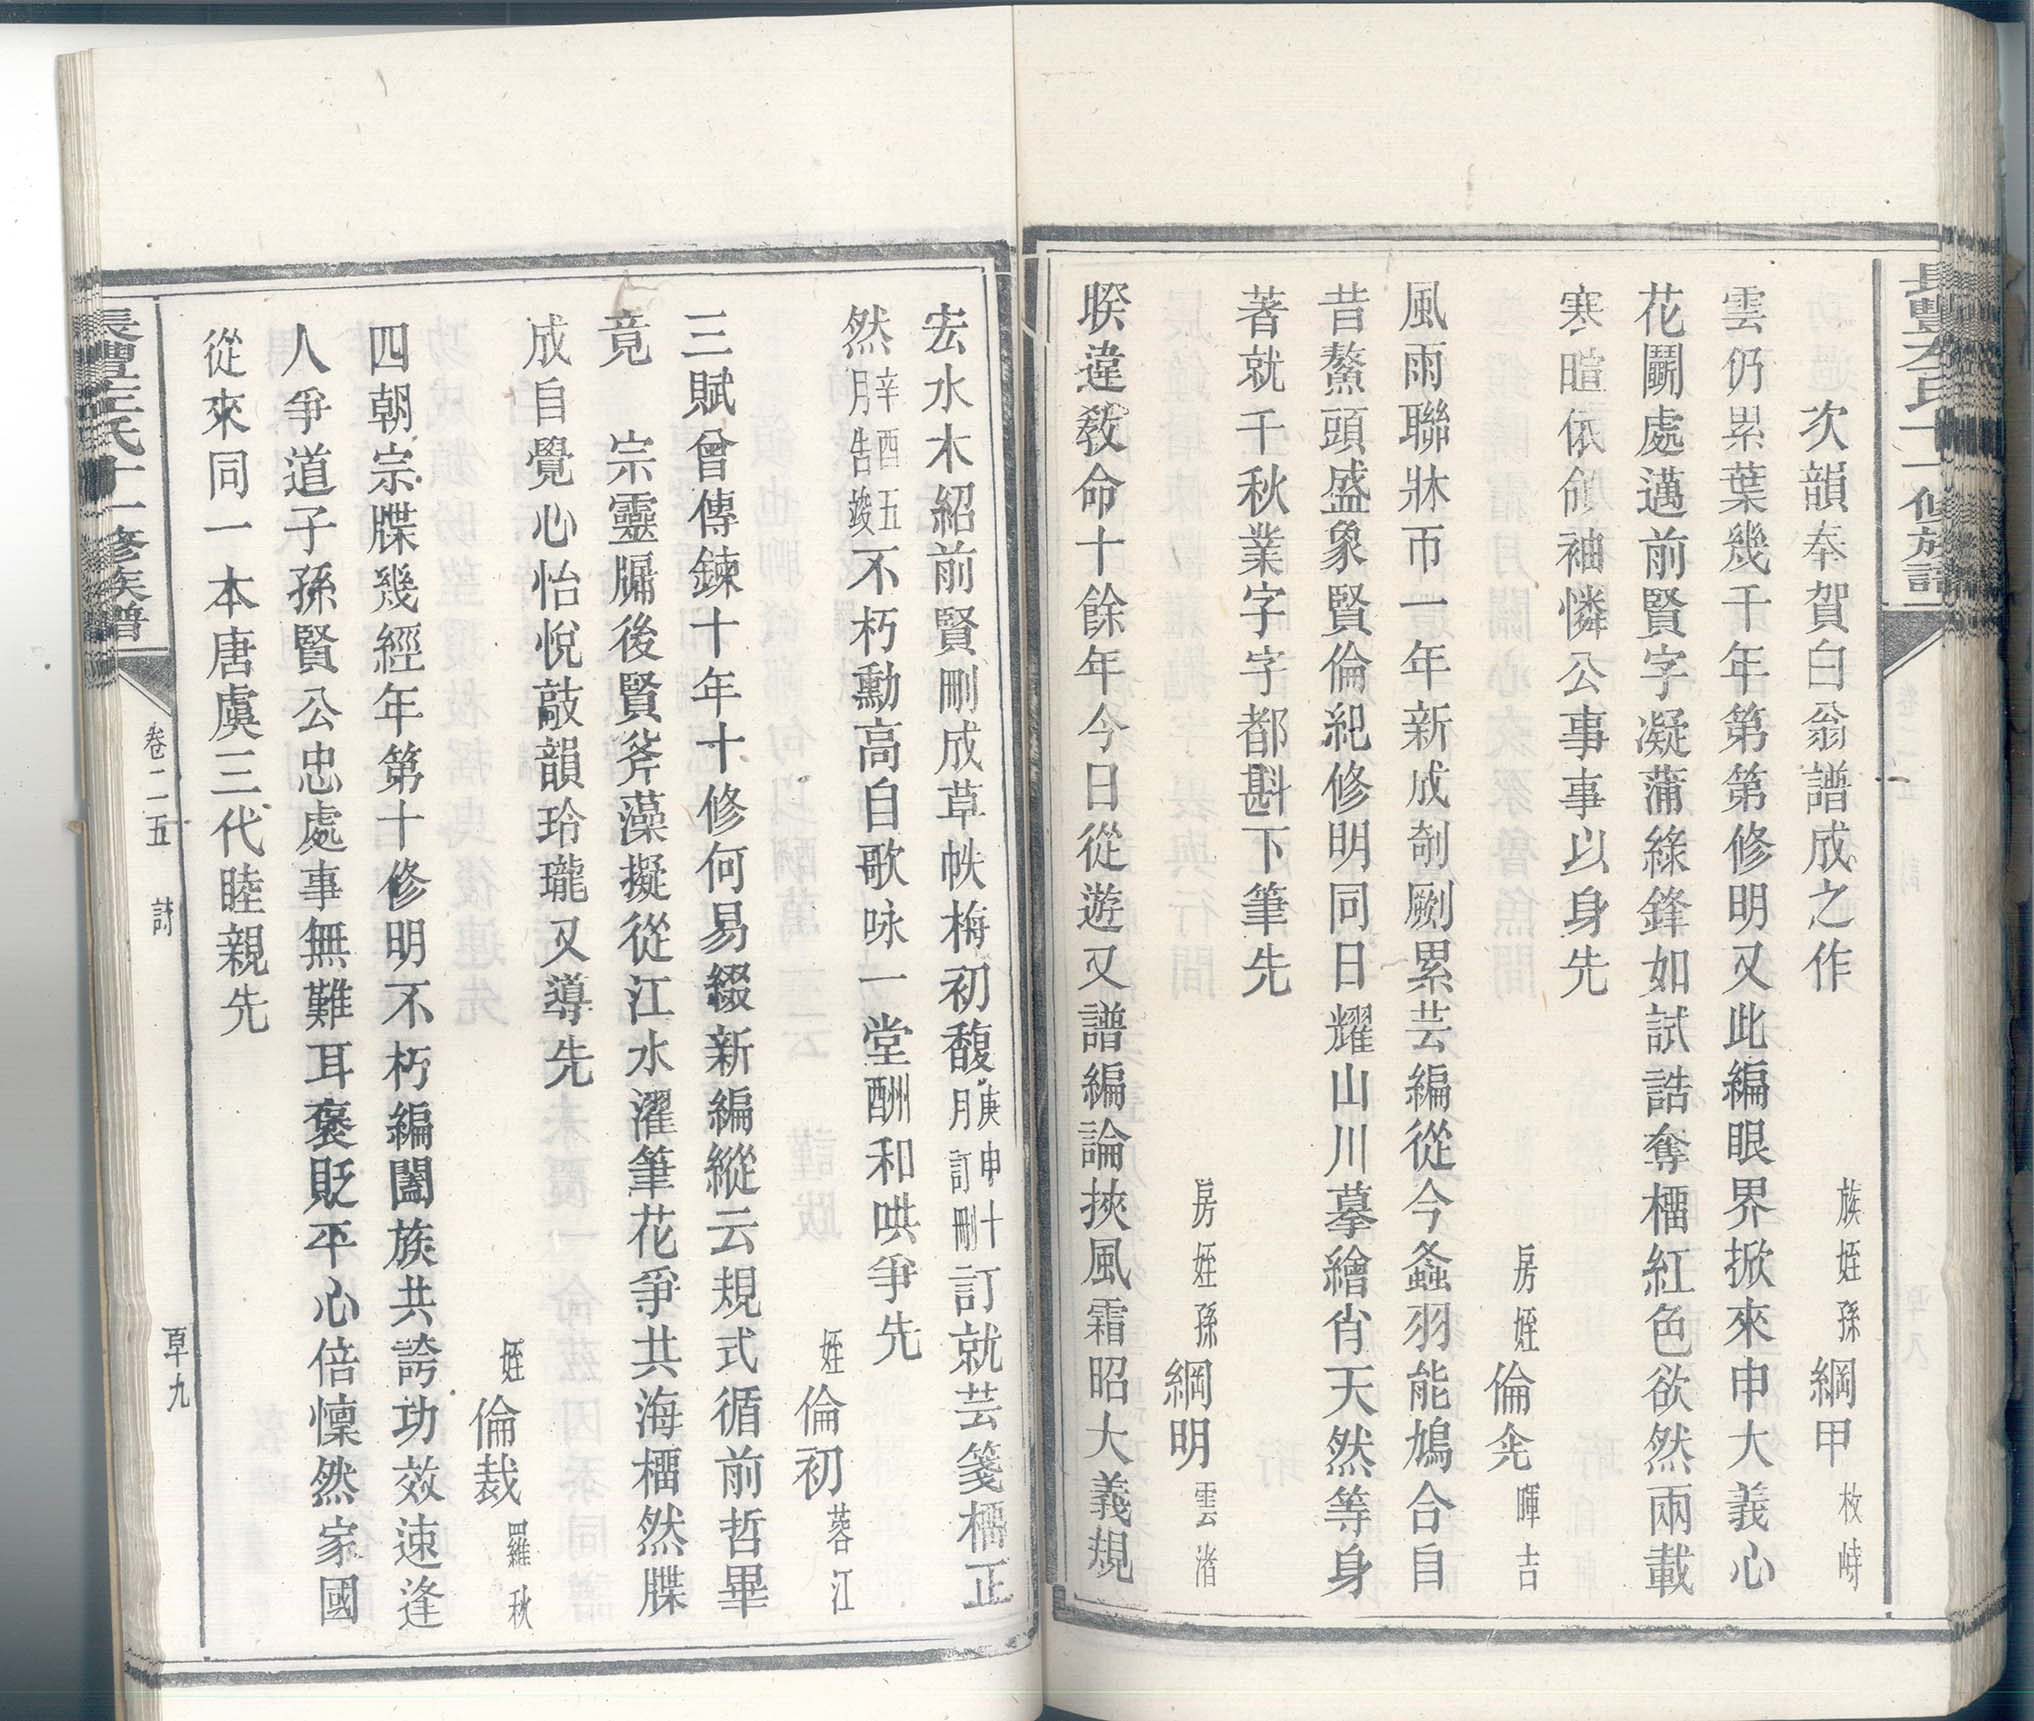 次韻奉賀白翁譜成之作
族姪孫綱甲枚峙
雲仍累葉幾千年第第修明又此編眼界掀來申大義心
花鬭處邁前賢字凝蒲綠鋒如試誥奪榴紅色欲然兩載
寒暄依領袖憐公事事以身先
房姪倫尭暉吉
風雨聯牀帀一年新成剞劂累芸編從今螽羽能鳩合自
昔鰲頭盛象賢倫紀修明同日耀山川摹繪肖天然等身
著就千秋業字字都斟下筆先
房姪孫綱明雲渚
暌違教命十餘年今日從遊又譜編論挾風霜昭大義規
宏水木紹前賢刪成草帙梅初馥庚申十月訂刪訂就芸箋榴正
然辛酉五月告竣不朽勳高自歌咏一堂酬和哄爭先
姪倫初蓉江
三賦曾傳鍊十年十修何易綴新編縱云規式循前哲畢
竟 宗靈牖後賢斧藻擬從江水濯筆花爭共海榴然牒
成自覺心怡悅敲韻玲瓏又導先
姪倫裁羅秋
四朝宗牒幾經年第十修明不朽編闔族共誇功效速逢
人爭道子孫賢公忠處事無難耳褒貶平心倍懍然家國
從來同一本唐虞三代睦親先
氏十一修族譜
卷二五 詩
草九